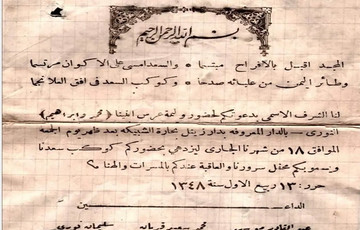 بسم الله الرحمن الرحيم
المجد اقبل بالافراح مبتسما والسعد امسى على الاكوان مرتسما
وطائر اليمن من عليائه صدحا وكوكب السعد في افق العلا نجما
لنا الشرف الاسمى بدعوتكم لحضور وليمة عرس ابنينا (محمد وابراهيم)
النوري - بالدار المعروفة بدار زينل بحارة الشبيكة بعد ظهر يوم الجمعة
الموافق ١٨ من شهرنا الجاري ليزدهي بحضوركم كوكب سعدنا
وبسموبكم محفل سرورنا والعاقبة عندكم بالمسرات والهنا
حرر: ١٣ ربيع الاول سنة ١٣٤٨
الداعـــين
عبد القادر محمد سعيد سليمان نوري